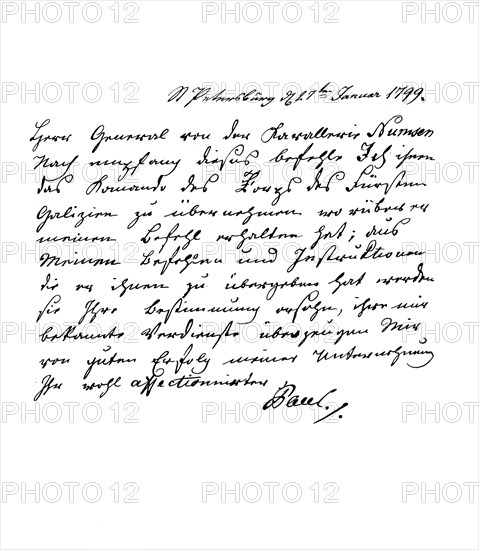 St Petersburg d 17ten Januar 1799.
Herr General von der Kavallerie Numsen
Nach empfang dieses befehle Ich ihnen
das Komando des Korps des Fürsten
Galizien zu übernehmen worüber er
meinen Befehl erhalten hat; aus
Meinen Befehlen und Instruktionen
die er ihnen zu übergeben hat werden
sie Ihre Bestimmung ersehn, ihre mir
bekannte Verdienste überzeugen Mir
von guten Erfolg meiner Unternehmung
Ihr wohl affectionnirter
Paul.
PHOTO 12